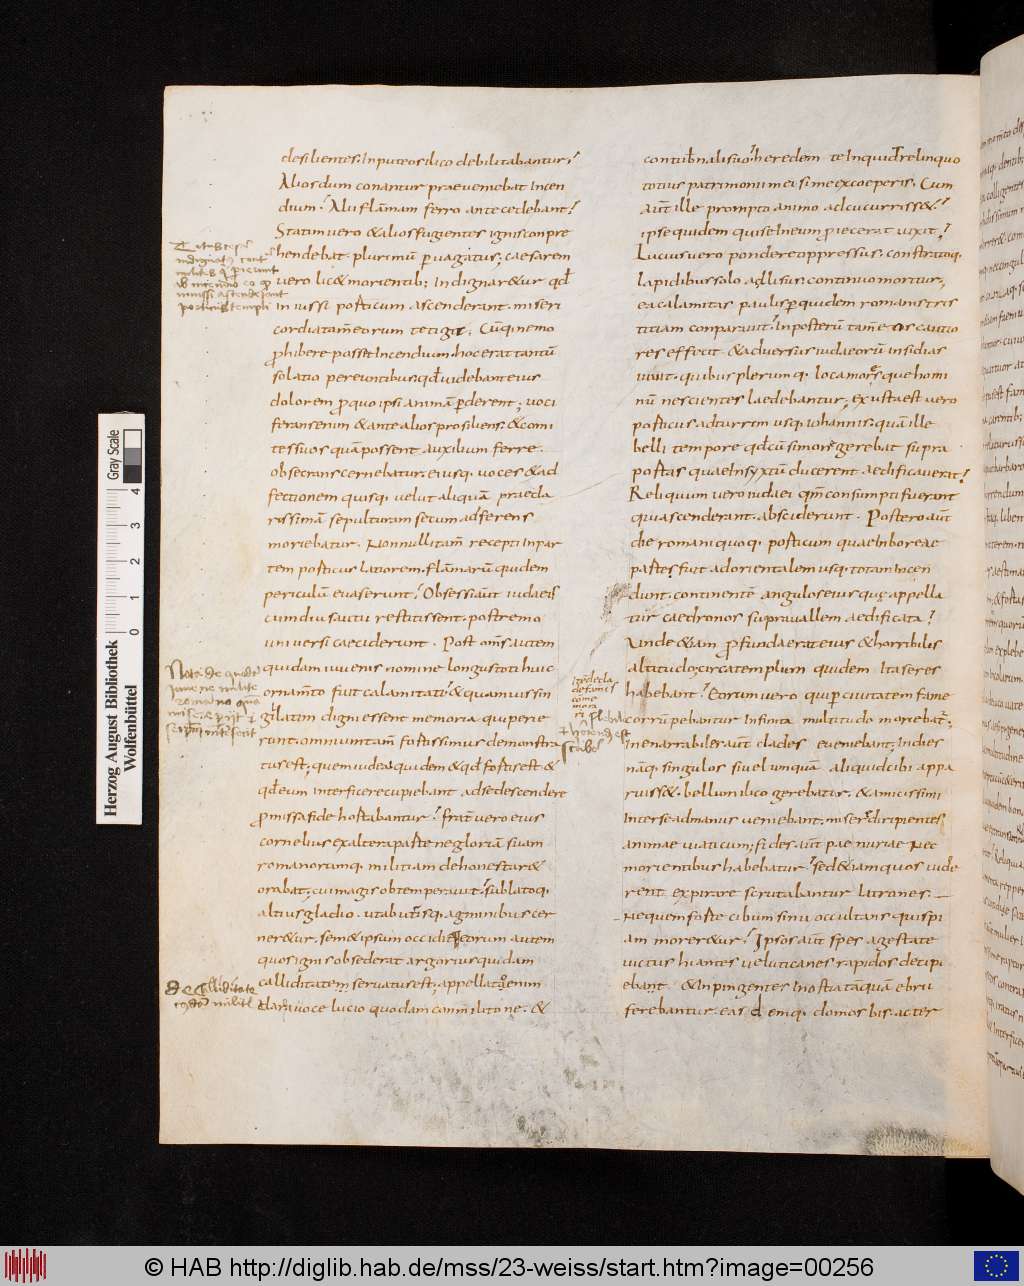 desilientes. Inputeos ilico debilitabantur;
Alios dum conantur praeveniebat Incen
dium; Alii flāmam ferro antecedebant;
Statim vero & alios fugientes ignis conpre
hendebat. plurimū pervagatus; caesarem
vero lic& morientib; Indignar&ur qđ
Iniussi posticum ascenderant. miseri
cordia tam̄ eorum tetigit; Cūq; nemo
prohibere posset Incendium. hoc erat tantū
solatio pereuntibus. qđ videbant eius
dolorem pro quo ipsi animā perderent; voci
ferans enim & ante alios prosiliens. & comi
tes suos quā possent auxilium ferre.
obsecrans cernebatur. eiusq; voces & ad
fectionem quisq; velut aliquā praecla
rissimā sepulturam secum adferens
moriebatur. Nonnulli tam̄ recepti Inpar
tem porticus latiorem. flāmarū quidem
periculū evaserunt; Obsessi aūt iudaeis
cum diu saucii restitissent. postremo
universi caeciderunt. Post om̄s autem
quidam iuvenis nomine longus toti huic
ornam̄to fuit calamitati; & quamvis sin
gilatim digni essent memoria qui perie
runt. omnium tam̄ fortissimus demonstra
tus est; quem iudaei quidem & qđ fortis est &
qđ eum interficere cupiebant ad se descendere
promissa fide hortabantur; frat̄ vero eius
cornelius ex altera parte ne gloriā suam
romanorumq; militiam dehonestar&
orabat; cui magis obtemperavit; sublatoq;
altius gladio. ut ab utrisq; agminibus cer
ner&ur. sem& ipsum occidit; Eorum autem
quos ignis obsederat artorius quidam
calliditatem servatus est; appellat̄ enim
clara voce lucio quodam conmilitone. &
contub̄nali suo; heredem te Inquit relinquo
totius patrimonii mei si me excoeperis. Cum
aūt ille prompto animo adcucurriss&;
ipse quidem qui se In eum proiecerat vixit;
Lucius vero pondere oppressus. constratoq;
lapidibus solo adlisus. continuo moritur;
ea calamitas paulisper quidem romanis tris
titiam conparuit; In posterū tam̄ eos cautio
res effecit. & adversus iudaeorū insidias
iuvit. quibus plerumq; locamorūque homi
nū nescientes laedebantur; exusta est vero
porticus ad turrim usq; iohannis. quā ille
belli tempore qđ cū simone gerebat supra
portas quae Insyxtū ducerent aedificaverat;
Reliquum vero iudaei qm̄ consumpti fuerant
qui ascenderant. absciderunt. Postero aūt
die romani quoq; porticum quae In boreae
parte fuit ad orientalem usq; totam Incen
dunt. continentē angulos eius q; appella
tur caedronos supra vallem aedificata;
Unde &iam profunda erat eius & horribilis
altitudo; circa templum quidem Ita se res
habebant; Eorum vero qui per civitatem fame
corrūpebantur Infinita multitudo moriebat̄.
Inenarrabiles aūt clades eveniebant; In dies
nāq; singulos sive Iumquā aliquid cibi appa
ruiss&. bellum ilico gerebatur. & amicissimi
Inter se ad manus veniebant. miserē diripientes
animae viaticum; fides aūt paenuriae nec
morientibus habebatur; sed &iam quos vide
rent expirare scrutabantur latrones.
Ne quem forte cibum sinu occultans quispi
am morer&ur; Ipsos aūt spes aegestate
victus hiantes velut canes rapidos decipi
ebant. & Inpingentes In ostia tāquam ebrii
ferebantur. easdemq; domos bis. ac ter
Herzog August Bibliothek
Wolfenbüttel
0 1 2 3 4
Gray Scale
© HAB http://diglib.hab.de/mss/23-weiss/start.htm?image=00256